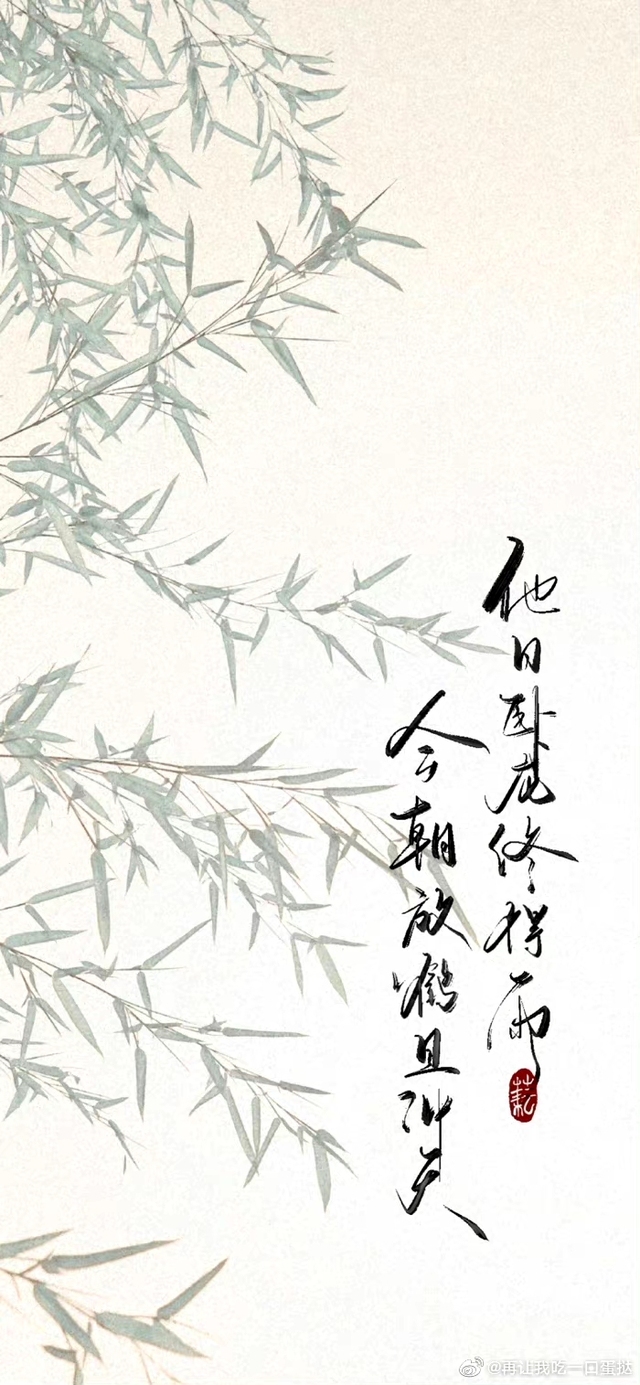 他日卧龙终得雨
今朝放鹤且冲天
耘
@再让我吃一口蛋挞